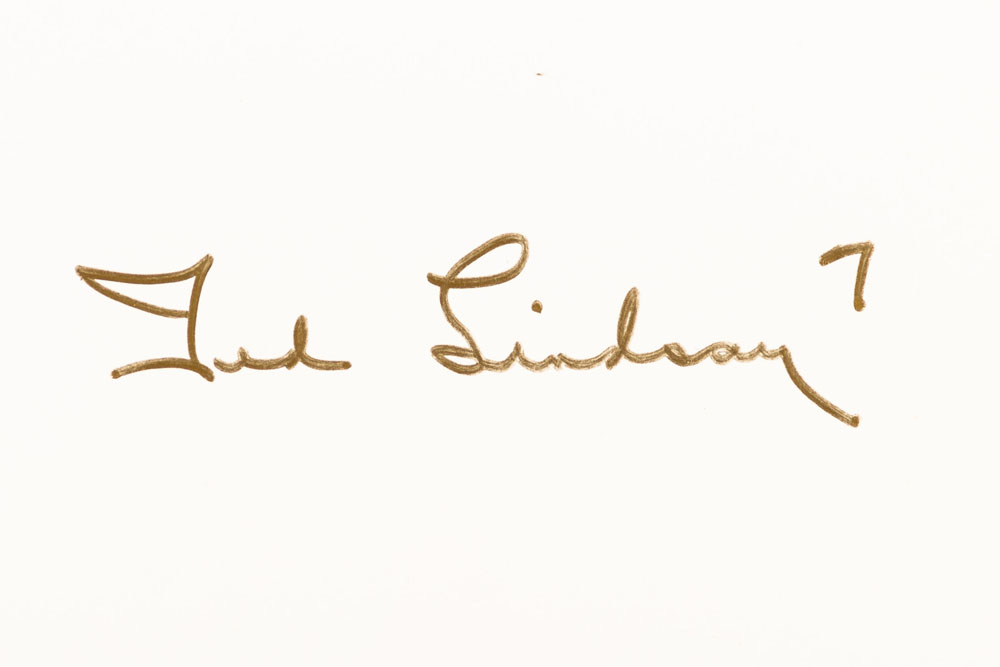 Ted Lindsay 7